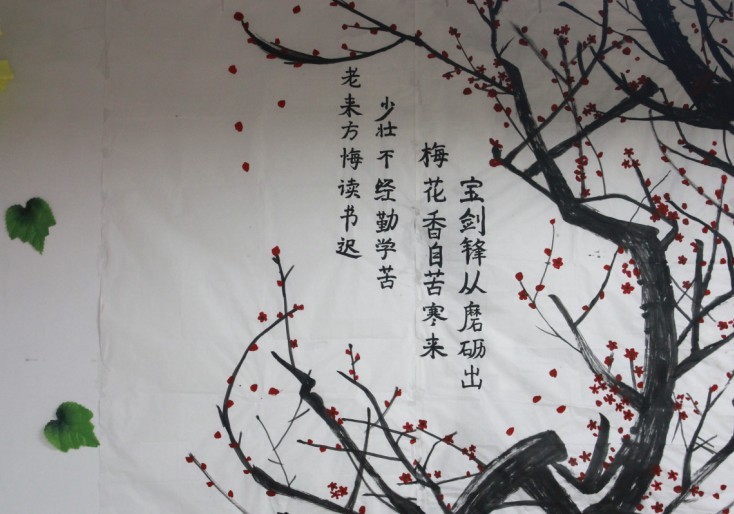 宝剑锋从磨砺出
梅花香自苦寒来
少壮不经勤学苦
老来方悔读书迟